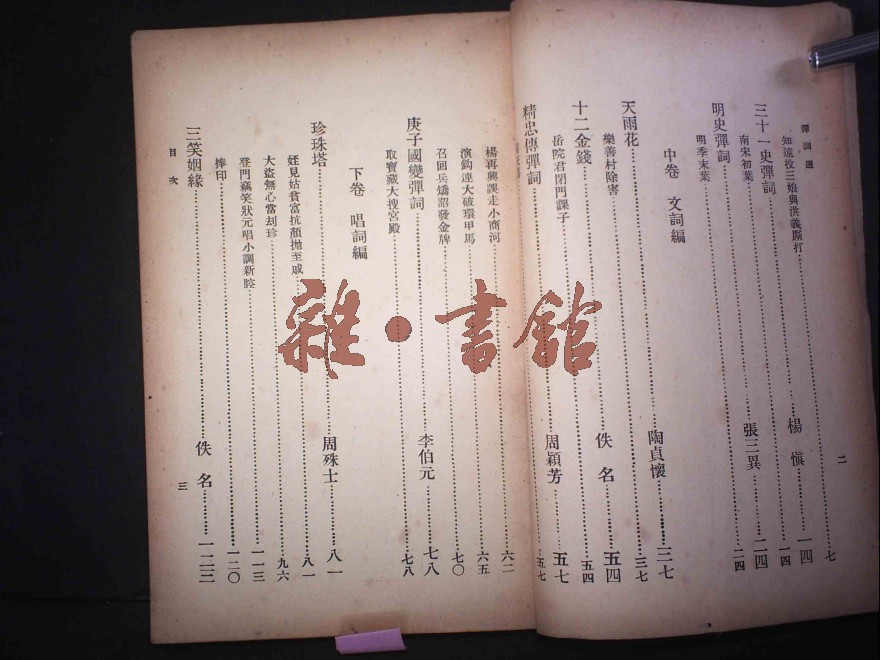 彈詞選
二
知遠投三娘與洪義廝打……七
三十一史彈詞……楊慎……一四
南宋初葉……一四
明史彈詞……張三異……二四
明季末葉……二四
中卷 文詞編
天雨花……陶貞懷……三七
樂善村除害……三七
十二金錢……佚名……五四
岳院君閉門課子……五四
精忠傳彈詞……周穎芳……五七
五七
楊再興誤走小商河……六二
演鈎連大破環甲馬……六五
召回兵矯詔發金牌……七〇
庚子國變彈詞……李伯元……七八
取寶藏大搜宮殿……七八
下卷 唱詞編
珍珠塔……周殊士……八一
姪見姑貧富抗顏拋至戚……八一
大盜無心當刦珍……九六
登門竊笑狀元唱小調新腔……一一三
捧印……一二〇
三笑姻緣……佚名……一二三
目次
三
雜·書館